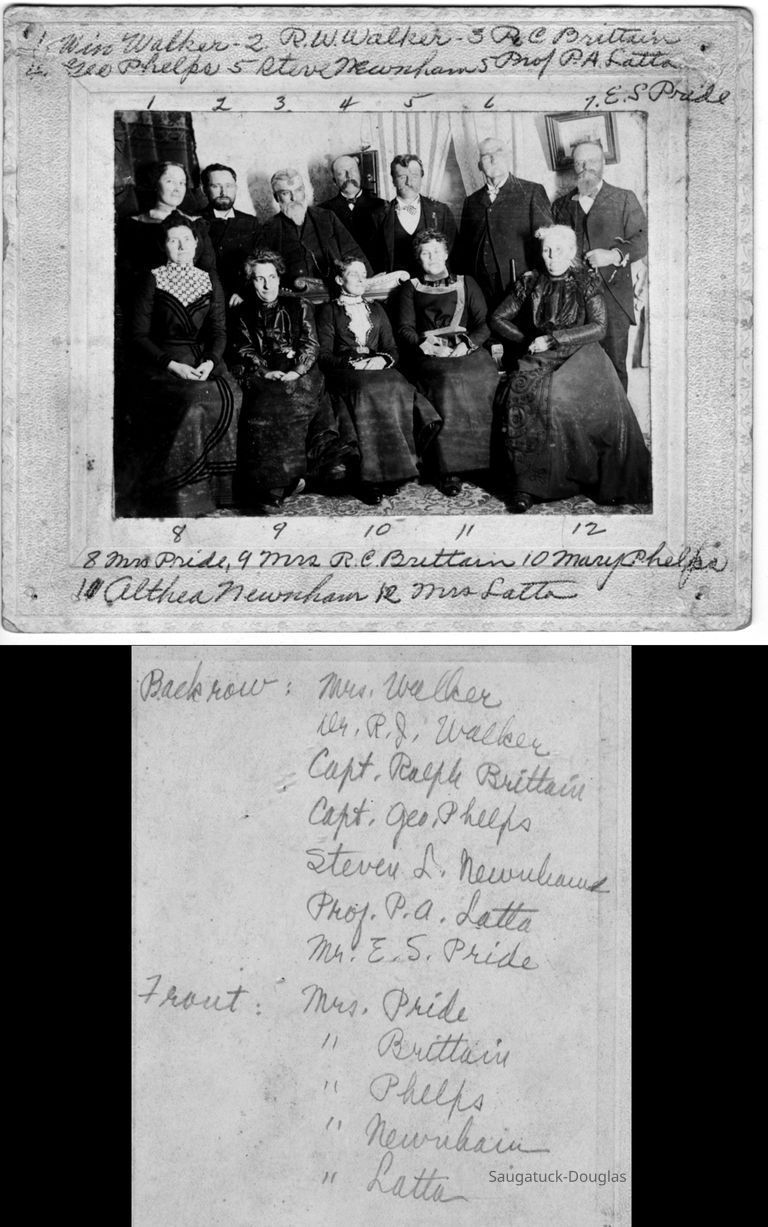 1 Win Walker - 2. R.W. Walker - 3 R.C Brittain
4. Geo Phelps 5 Steve Newnham 5 Prof P.A. Latta
1 2 3. 4 5 6 7. E.S Pride
8 9 10 11 12
8 Mrs Pride, 9 Mrs R.C. Brittain 10 Mary Phelps
11 Althea Newnham 12 Mrs Latta
Back row: Mrs. Walker
Dr. R.J. Walker
Capt. Ralph Brittain
Capt. Geo. Phelps
Steven L. Newnham
Prof. P.A. Latta
Mr. E.S. Pride
Front: Mrs. Pride
" Brittain
" Phelps
" Newnham
" Latta
Saugatuck-Douglas